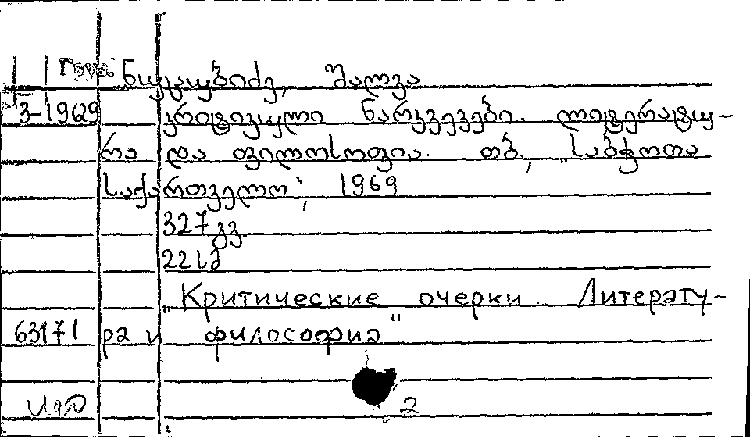 ნუცუბიძე, შალვა
3-1969 კრიტიკული ნარკვევები. ლიტერატუ-
რა და ფილოსოფია. თბ., "საბჭოთა
საქართველო", 1969
327 გვ.
22 სმ
"Критические очерки. Литерату-
63171 ра и философиа"
2